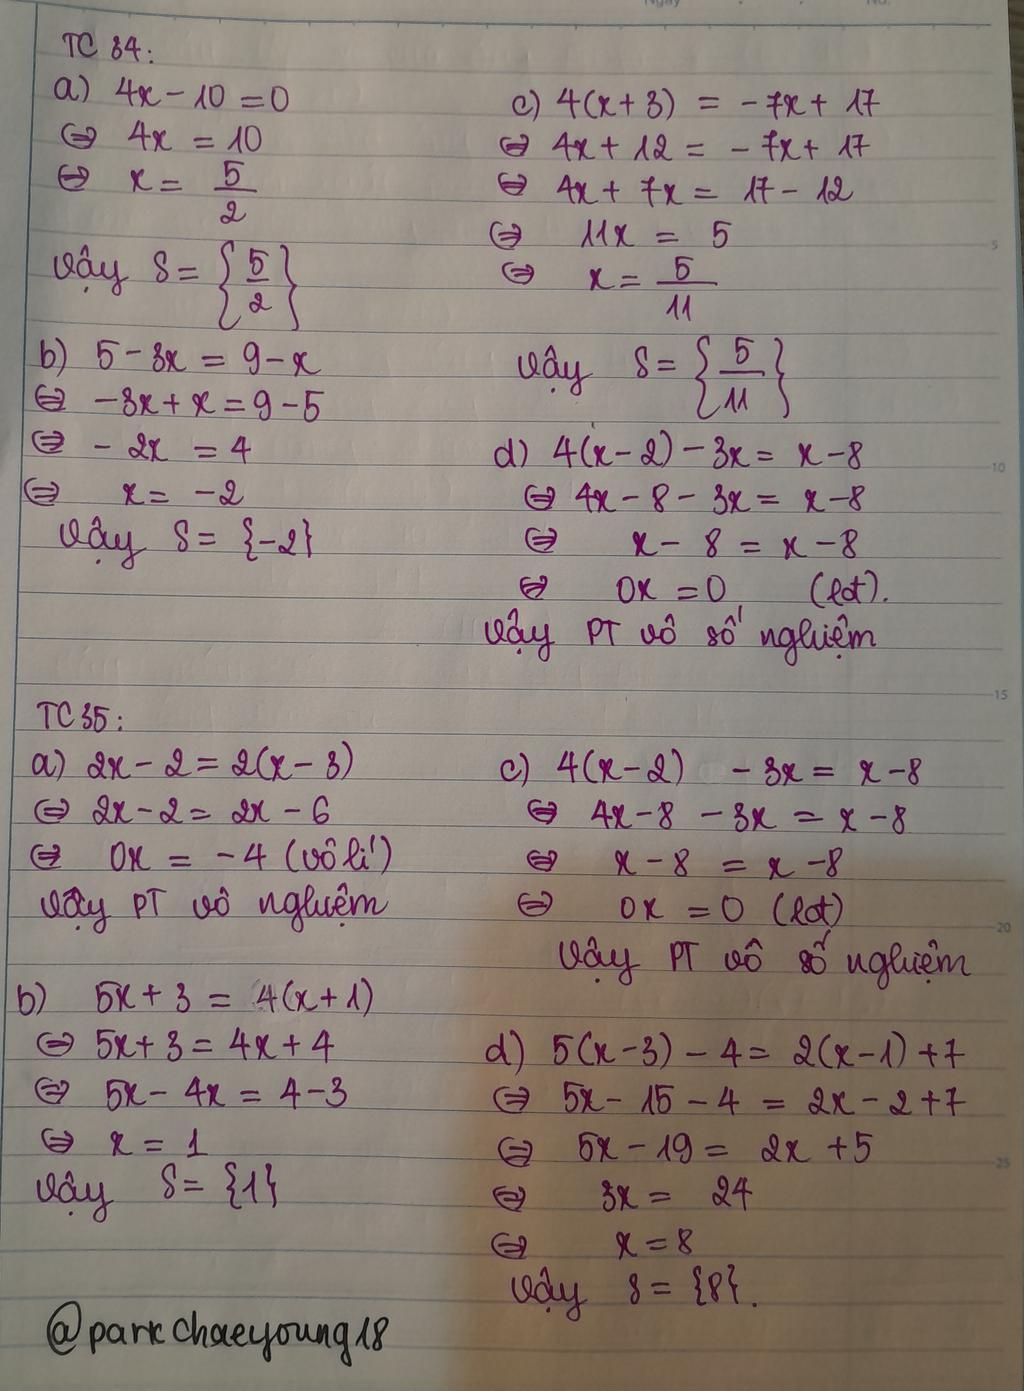 TC 34:
a) 4x - 10 = 0
⇔ 4x = 10
⇔ x = 5/2
Vậy S = {5/2}
b) 5 - 3x = 9 - x
⇔ -3x + x = 9 - 5
⇔ - 2x = 4
⇔ x = -2
Vậy S = {-2}
c) 4(x + 3) = - 7x + 17
⇔ 4x + 12 = - 7x + 17
⇔ 4x + 7x = 17 - 12
⇔ 11x = 5
⇔ x = 5/11
Vậy S = {5/11}
d) 4(x - 2) - 3x = x - 8
⇔ 4x - 8 - 3x = x - 8
⇔ x - 8 = x - 8
⇔ 0x = 0 (lđt).
Vậy PT vô số nghiệm
TC 35:
a) 2x - 2 = 2(x - 3)
⇔ 2x - 2 = 2x - 6
⇔ 0x = - 4 (vô lí)
Vậy PT vô nghiệm
b) 5x + 3 = 4(x + 1)
⇔ 5x + 3 = 4x + 4
⇔ 5x - 4x = 4 - 3
⇔ x = 1
Vậy S = {1}
c) 4(x - 2) - 3x = x - 8
⇔ 4x - 8 - 3x = x - 8
⇔ x - 8 = x - 8
⇔ 0x = 0 (lđt)
Vậy PT vô số nghiệm
d) 5(x - 3) - 4 = 2(x - 1) + 7
⇔ 5x - 15 - 4 = 2x - 2 + 7
⇔ 5x - 19 = 2x + 5
⇔ 3x = 24
⇔ x = 8
Vậy S = {8}.
@parkchaeyoung18
5
10
15
20
25